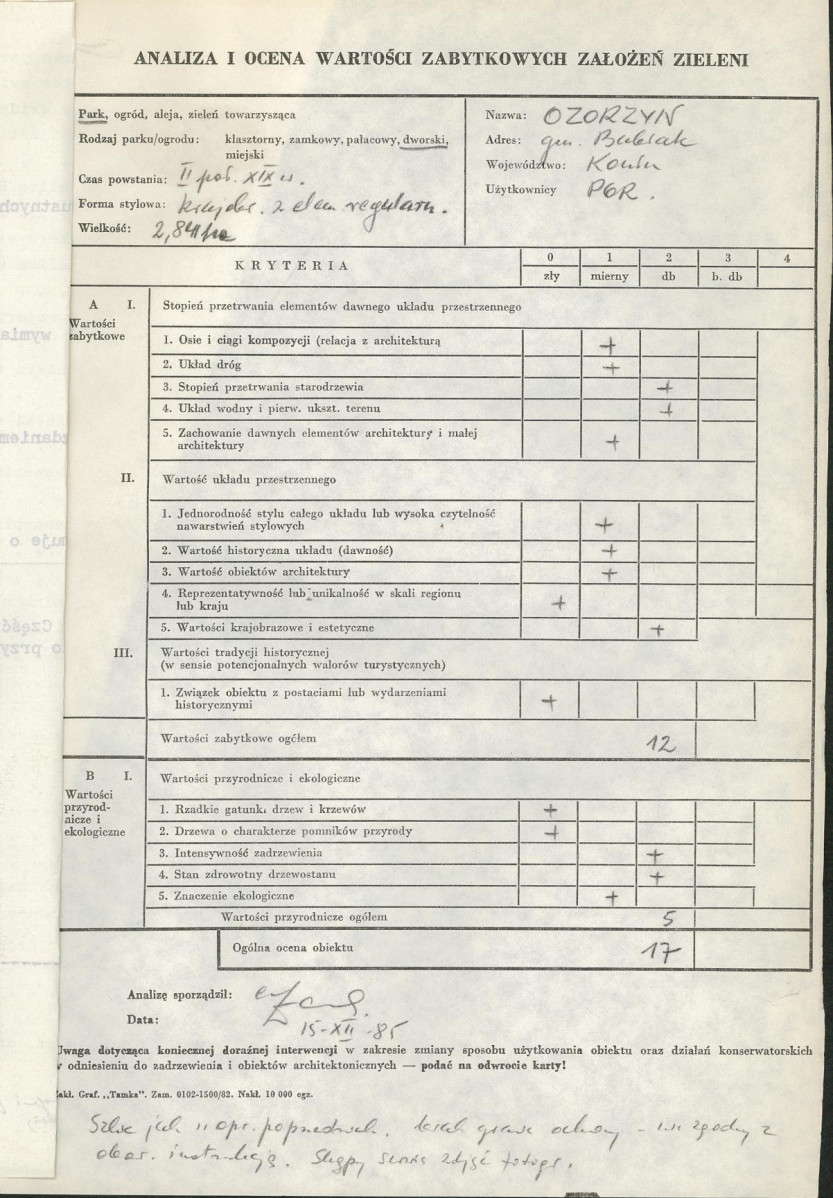 ANALIZA I OCENA WARTOŚCI ZABYTKOWYCH ZAŁOŻEŃ ZIELENI
Park, ogród, aleja, zieleń towarzysząca
Rodzaj parku/ogrodu: klasztorny, zamkowy, pałacowy, dworski, miejski
Czas powstania: II poł. XIX w.
Forma stylowa: krajobr. z elem regularn.
Wielkość: 2,84 ha
Nazwa: OZORZYN
Adres: gm. Babiak
Województwo: Konin
Użytkownicy PGR.
KRYTERIA 0 1 2 3 4
zły mierny db b. db
A I. Stopień przetrwania elementów dawnego układu przestrzennego
Wartości zabytkowe
1. Osie i ciągi kompozycji (relacja z architekturą +
2. Układ dróg +
3. Stopień przetrwania starodrzewia +
4. Układ wodny i pierw. ukszt. terenu +
5. Zachowanie dawnych elementów architektury i małej
architektury +
II. Wartość układu przestrzennego
1. Jednorodność stylu całego układu lub wysoka czytelność
nawarstwień stylowych +
2. Wartość historyczna układu (dawność) +
3. Wartość obiektów architektury +
4. Reprezentatywność lub unikalność w skali regionu
lub kraju +
5. Wartości krajobrazowe i estetyczne +
III. Wartości tradycji historycznej
(w sensie potencjonalnych walorów turystycznych)
1. Związek obiektu z postaciami lub wydarzeniami
historycznymi +
Wartości zabytkowe ogółem 12
B I. Wartości przyrodnicze i ekologiczne
Wartości
przyrod-
nicze i
ekologiczne
1. Rzadkie gatunki drzew i krzewów +
2. Drzewa o charakterze pomników przyrody +
3. Intensywność zadrzewienia +
4. Stan zdrowotny drzewostanu +
5. Znaczenie ekologiczne +
Wartości przyrodnicze ogółem 5
Ogólna ocena obiektu 17
Analizę sporządził:
Data: 15-XII-85
Uwaga dotycząca koniecznej doraźnej interwencji w zakresie zmiany sposobu użytkowania obiektu oraz działań konserwatorskich
w odniesieniu do zadrzewienia i obiektów architektonicznych — podać na odwrocie karty!
Zakł. Graf. „Tamka". Zam. 0102-1500/82. Nakł. 10 000 egz.
jak w opr. poprzednich. granic ochrony - zgodny z
instrukcją. zdjęć fotogr.